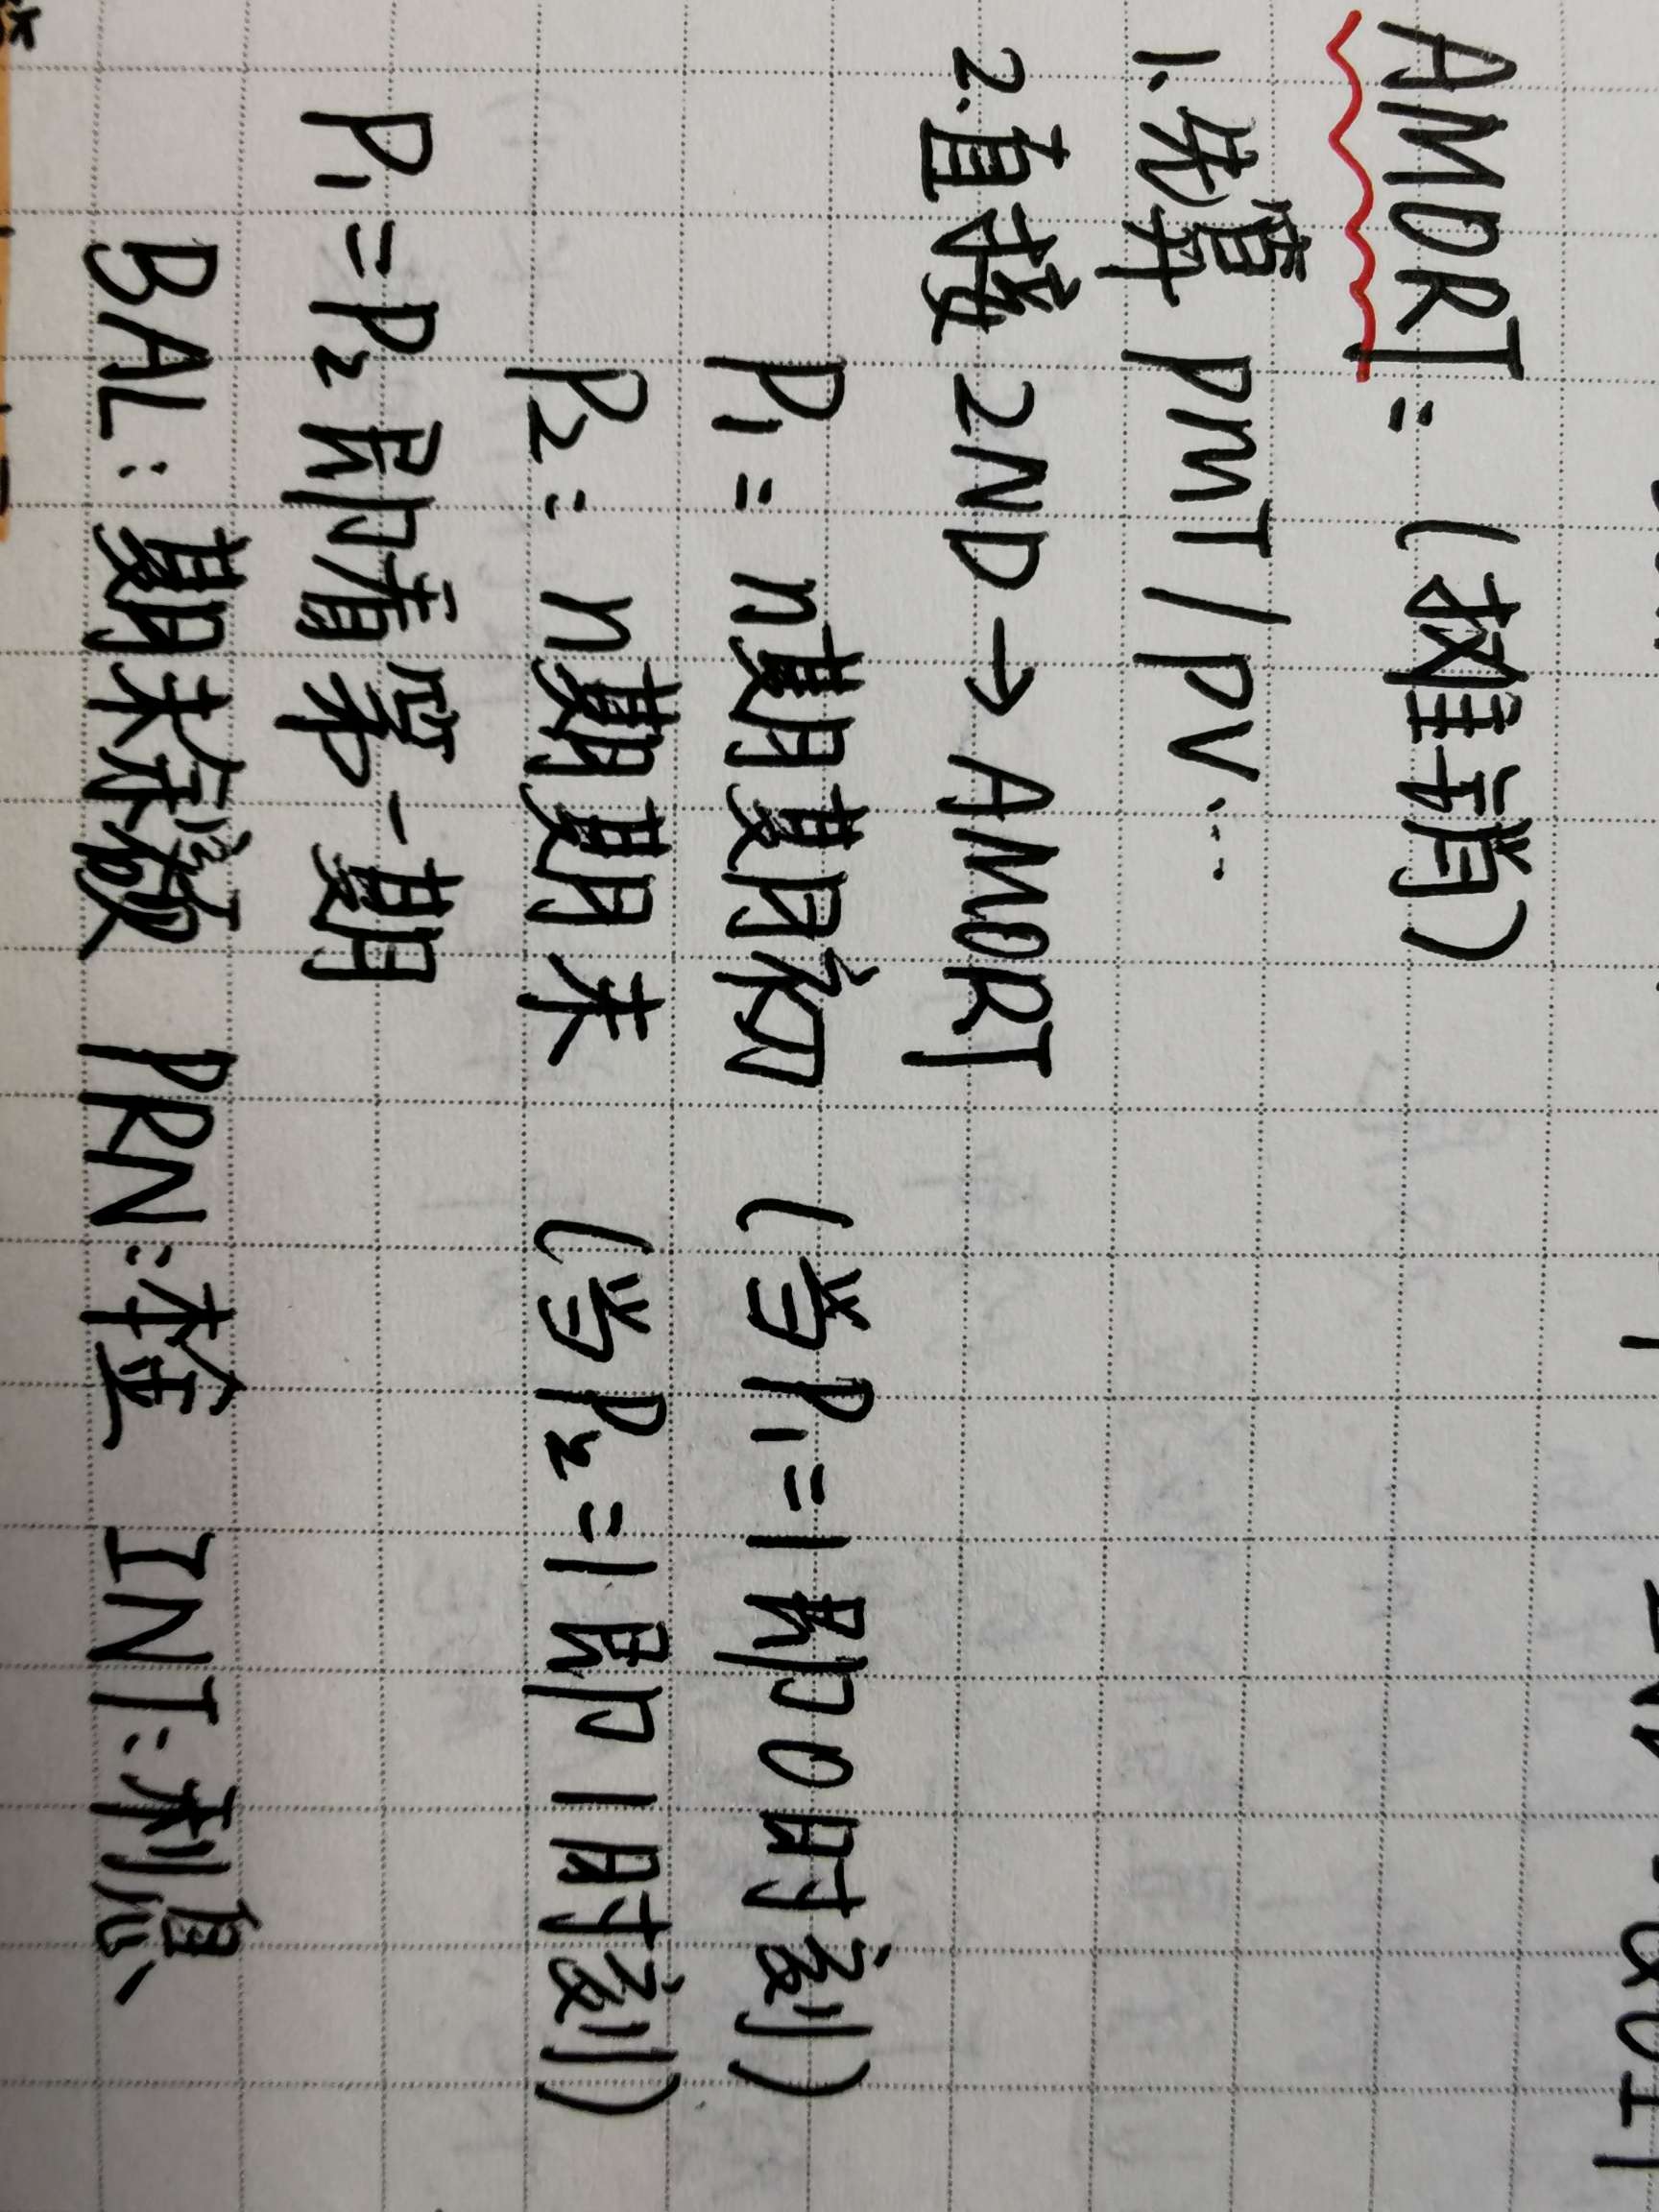 AMORT: (摊销)
1. 先算 PMT / PV...
2. 直接 2ND → AMORT
P₁ = n期期初 (当P₁=1即0时刻)
P₂: n期期末 (当P₂=1即1时刻)
P₁=P₂即看单一期
BAL: 期末余额 PRN: 本金 INT: 利息